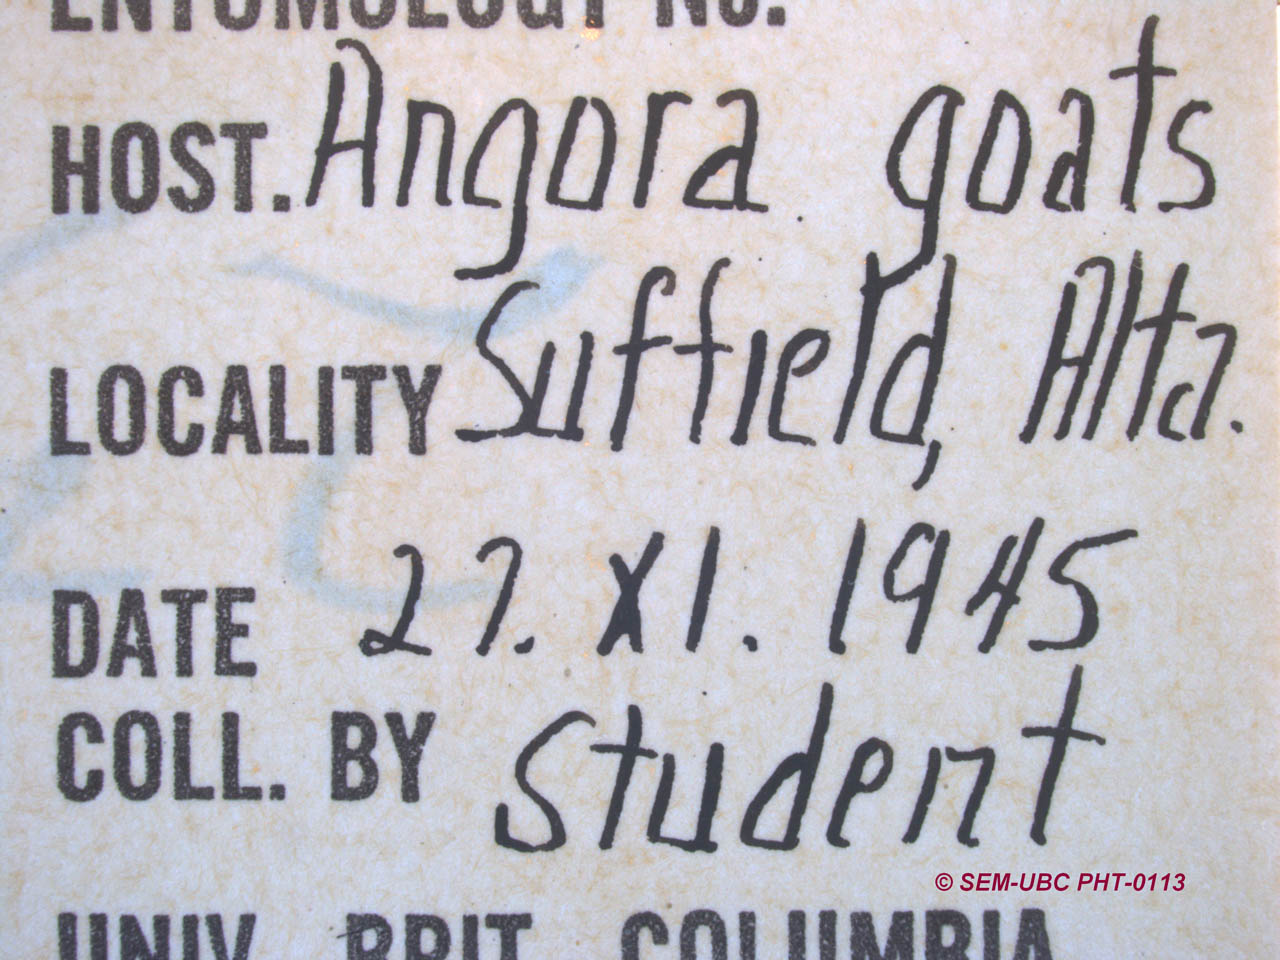 ENTOMOLOGY NO.
HOST. Angora goats
LOCALITY Suffield, Alta.
DATE 27. XI. 1945
COLL. BY Student
© SEM-UBC PHT-0113
UNIV. BRIT. COLUMBIA